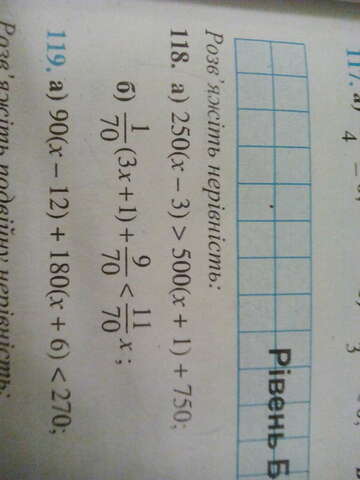 117. а)
4
3
Рівень Б
Розв'яжіть нерівність:
118. а) 250(x − 3) > 500(x + 1) + 750;
б) 1/70 (3x + 1) + 9/70 < 11/70 x;
119. а) 90(x − 12) + 180(x + 6) < 270;
Розв'яжіть подвійну нерівність: